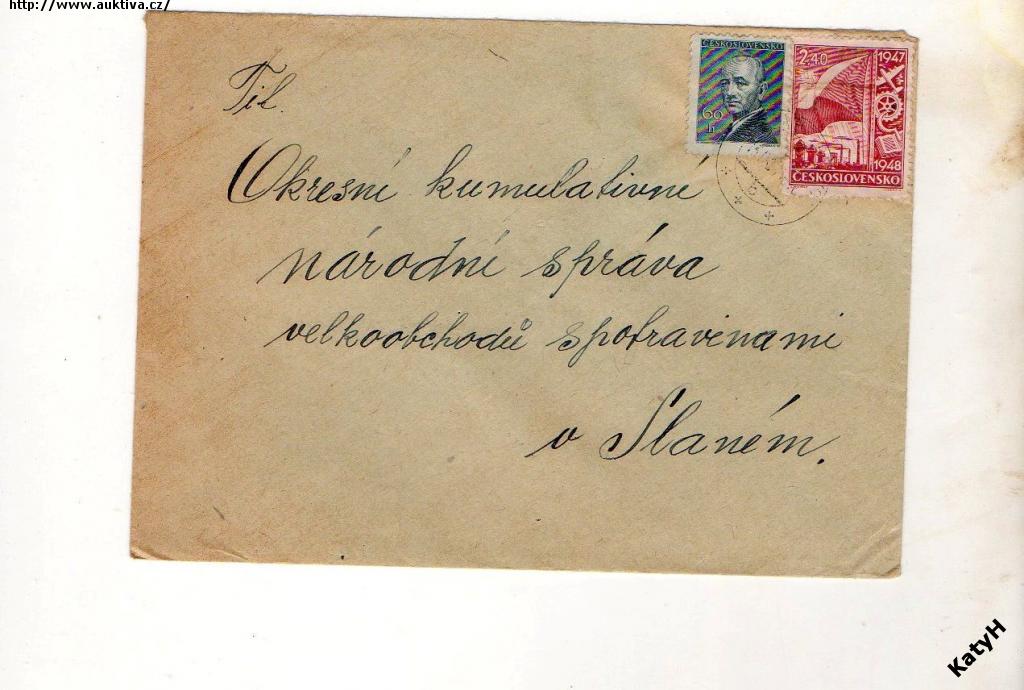 http://www.auktiva.cz/
ČESKOSLOVENSKO
60
h
2.40
1947
1948
ČESKOSLOVENSKO
Tit.
Okresní kumulativní
národní správa
velkoobchodů s potravinami
v Slaném.
KatyH